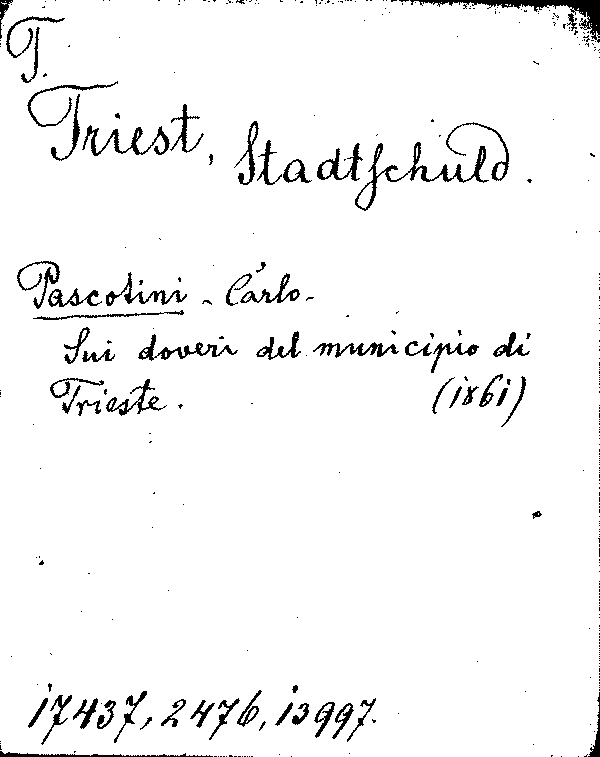 T.
Triest, Stadtschuld.
Pascotini - Carlo -
Sui doveri del municipio di
Trieste. (1861)
17437, 2476, 13997.